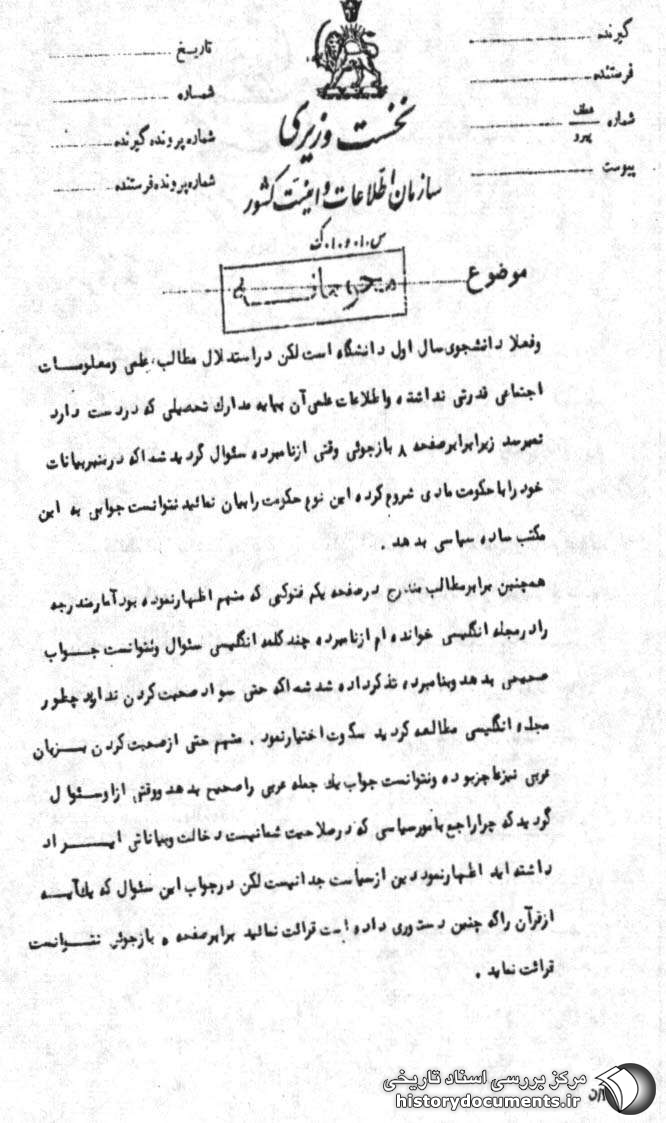 گیرنده
فرستنده
شماره عطف
پیرو
پیوست
تاریخ
شماره
شماره پرونده گیرنده
شماره پرونده فرستنده
نخست وزیری
سازمان اطلاعات و امنیت کشور
موضوع
وفعلا دانشجوی سال اول دانشگاه است لکن در استدلال مطالب علمی و معلومات
اجتماعی قدرتی نداشته و اطلاعات علمی آن بپایه مدارك تحصیلی که در دست دارد
نمیرسد زیرا برابر صفحه ۸ بازجوئی وقتی از نامبرده سئوال گردید شما که در منبر بیانات
خود را با حکومت مادی شروع کرده این نوع حکومت را بیان نمائید نتوانست جوابی به این
مکتب ساده سیاسی بدهد .
همچنین برابر مطالب مندرج در صفحه یکم فتوکپی که متهم اظهار نموده بود آمار مندرجه
را در مجله انگلیسی خوانده ام از نامبرده چند کلمه انگلیسی سئوال ونتوانست جواب
صحیحی بدهد وبنامبرده تذکر داده شد شما که حتی سواد صحبت کردن ندارید چطور
مجله انگلیسی مطالعه کردید سکوت اختیار نمود . متهم حتی از صحبت کردن بزبان
عربی نیز عاجز بوده ونتوانست جواب یك جمله عربی را صحیح بدهد ووقتی از او سئوال
گردید که چرا راجع بامور سیاسی که در صلاحیت شما نیست دخالت وبیاناتی ایراد
داشته اید اظهار نمود دین از سیاست جدا نیست لکن در جواب این سئوال که یك آیه
از قرآن را که چنین دستوری داده است قرائت نمائید برابر صفحه ۵ بازجوئی نتوانست
قرائت نماید .
مرکز بررسی اسناد تاریخی
historydocuments.ir